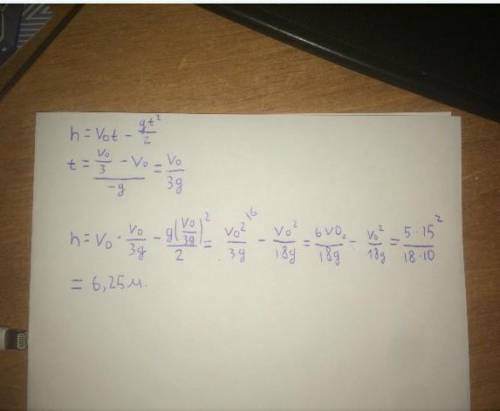 h = v₀t − gt²/2
t = (v₀/3 − v₀)/(−g) = v₀/3g
h = v₀ · v₀/3g − g(v₀/3g)²/2 = v₀²/3g^16 − v₀²/18g = 6v0₂/18g − v₀²/18g = 5·15²/18·10
= 6,25м.